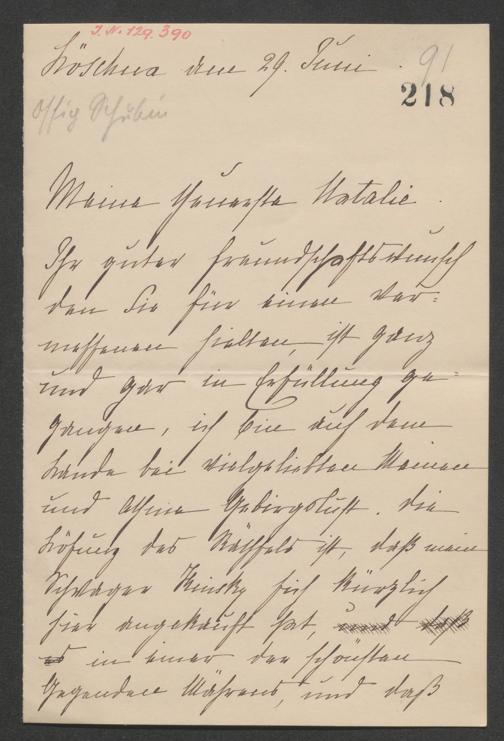 I. N. 129.390
Löschna den 29. Juni.
91
218
Ossip Schubin
Meine theuerste Natalie.
Ihr guter Freundschaftswunsch
den Sie für einen ver-
messenen hielten, ist ganz
und gar in Erfüllung ge-
gangen, ich bin auf dem
Lande bei vielgeliebten Meinen
und athme Gebirgsluft. Die
Lösung des Räthsels ist, daß mein
Schwager Kinsky sich kürzlich
hier angekauft hat, und daß
es in einer der schönsten
Gegenden Mährens, und daß